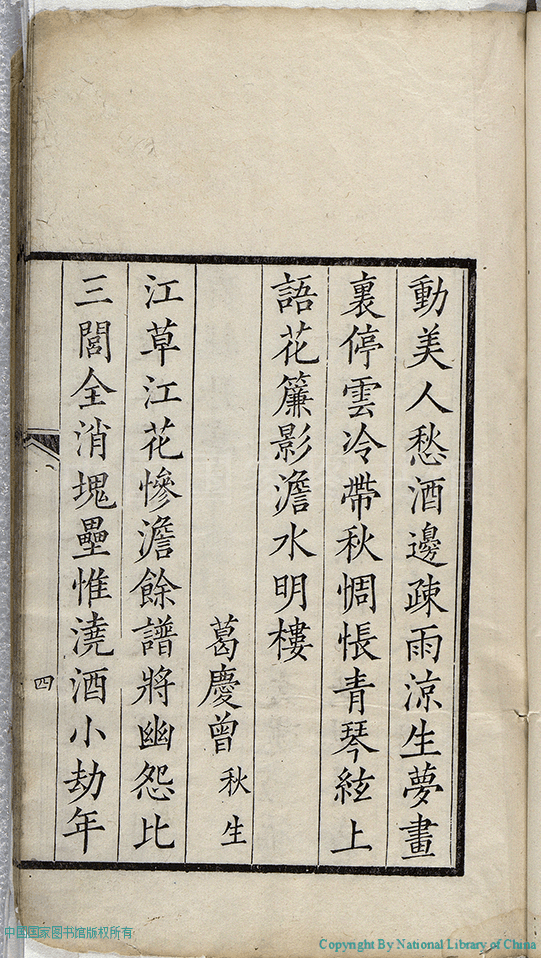 動美人愁酒邊疎雨涼生夢畫
裏停雲冷帶秋惆悵青琴絃上
語花簾影澹水明樓
葛慶曾秋生
江草江花慘澹餘譜將幽怨比
三閭全消塊壘惟澆酒小劫年
四
中国国家图书馆版权所有
Copyright By National Library of China